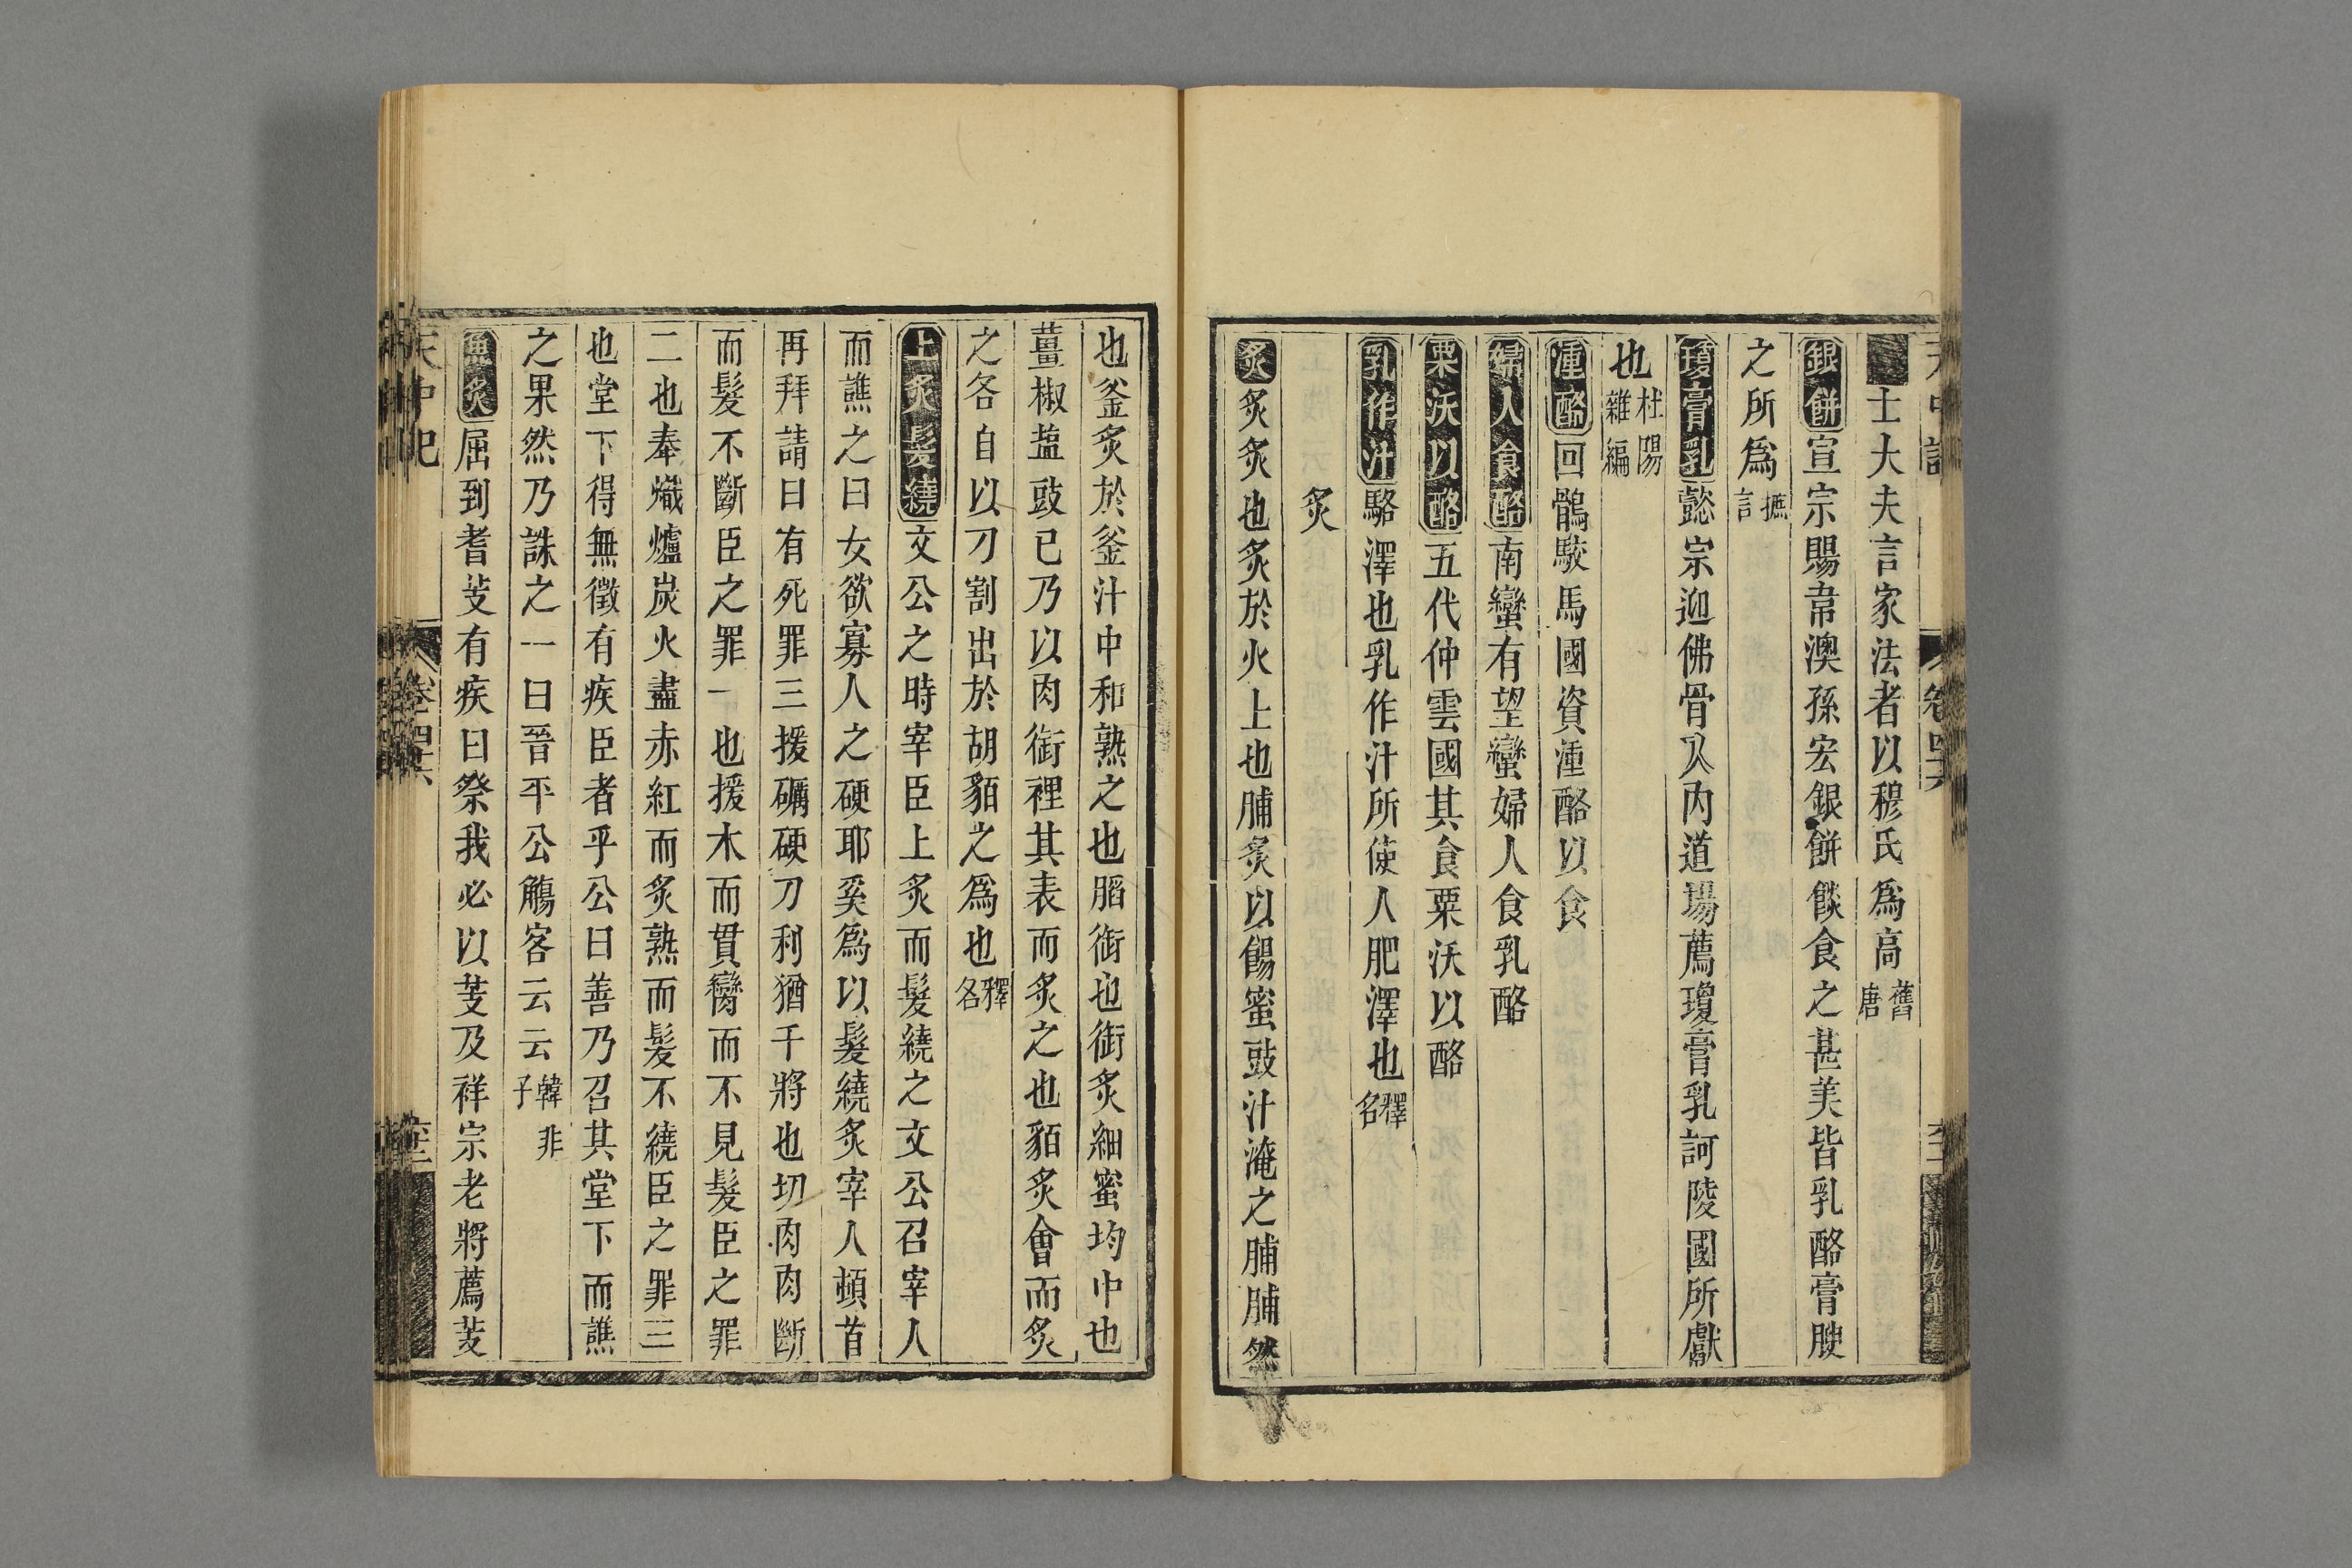 士大夫言家法者以穆氏爲高舊唐
銀餅宣宗賜韋澳孫宏銀餅餤食之甚美皆乳酪膏腴
之所爲摭言
瓊膏乳懿宗迎佛骨入内道場薦瓊膏乳訶陵國所獻
也杜陽雜編
湩酪回鶻駮馬國資湩酪以食
婦人食酪南蠻有望蠻婦人食乳酪
粟沃以酪五代仲雲國其食粟沃以酪
乳作汁駱澤也乳作汁所使人肥澤也釋名
炙
炙炙炙也炙於火上也脯炙以餳蜜豉汁淹之脯脯然
也釜炙於釜汁中和熟之也䐄銜也銜炙細蜜均中也
薑椒塩豉已乃以肉銜裡其表而炙之也貊炙會而炙
之各自以刀割出於胡貊之爲也釋名
上炙髮繞文公之時宰臣上炙而髮繞之文公召宰人
而譙之曰女欲寡人之硬耶奚爲以髮繞炙宰人頓首
再拜請曰有死罪三援礪硬刀利猶干將也切肉肉斷
而髮不斷臣之罪一也援木而貫臠而不見髮臣之罪
二也奉熾爐炭火盡赤紅而炙熟而髮不繞臣之罪三
也堂下得無徵有疾臣者乎公曰善乃召其堂下而譙
之果然乃誅之一曰晉平公觴客云云韓非子
魚炙屈到耆芰有疾曰祭我必以芰及祥宗老將薦芰
天中記
卷四十六